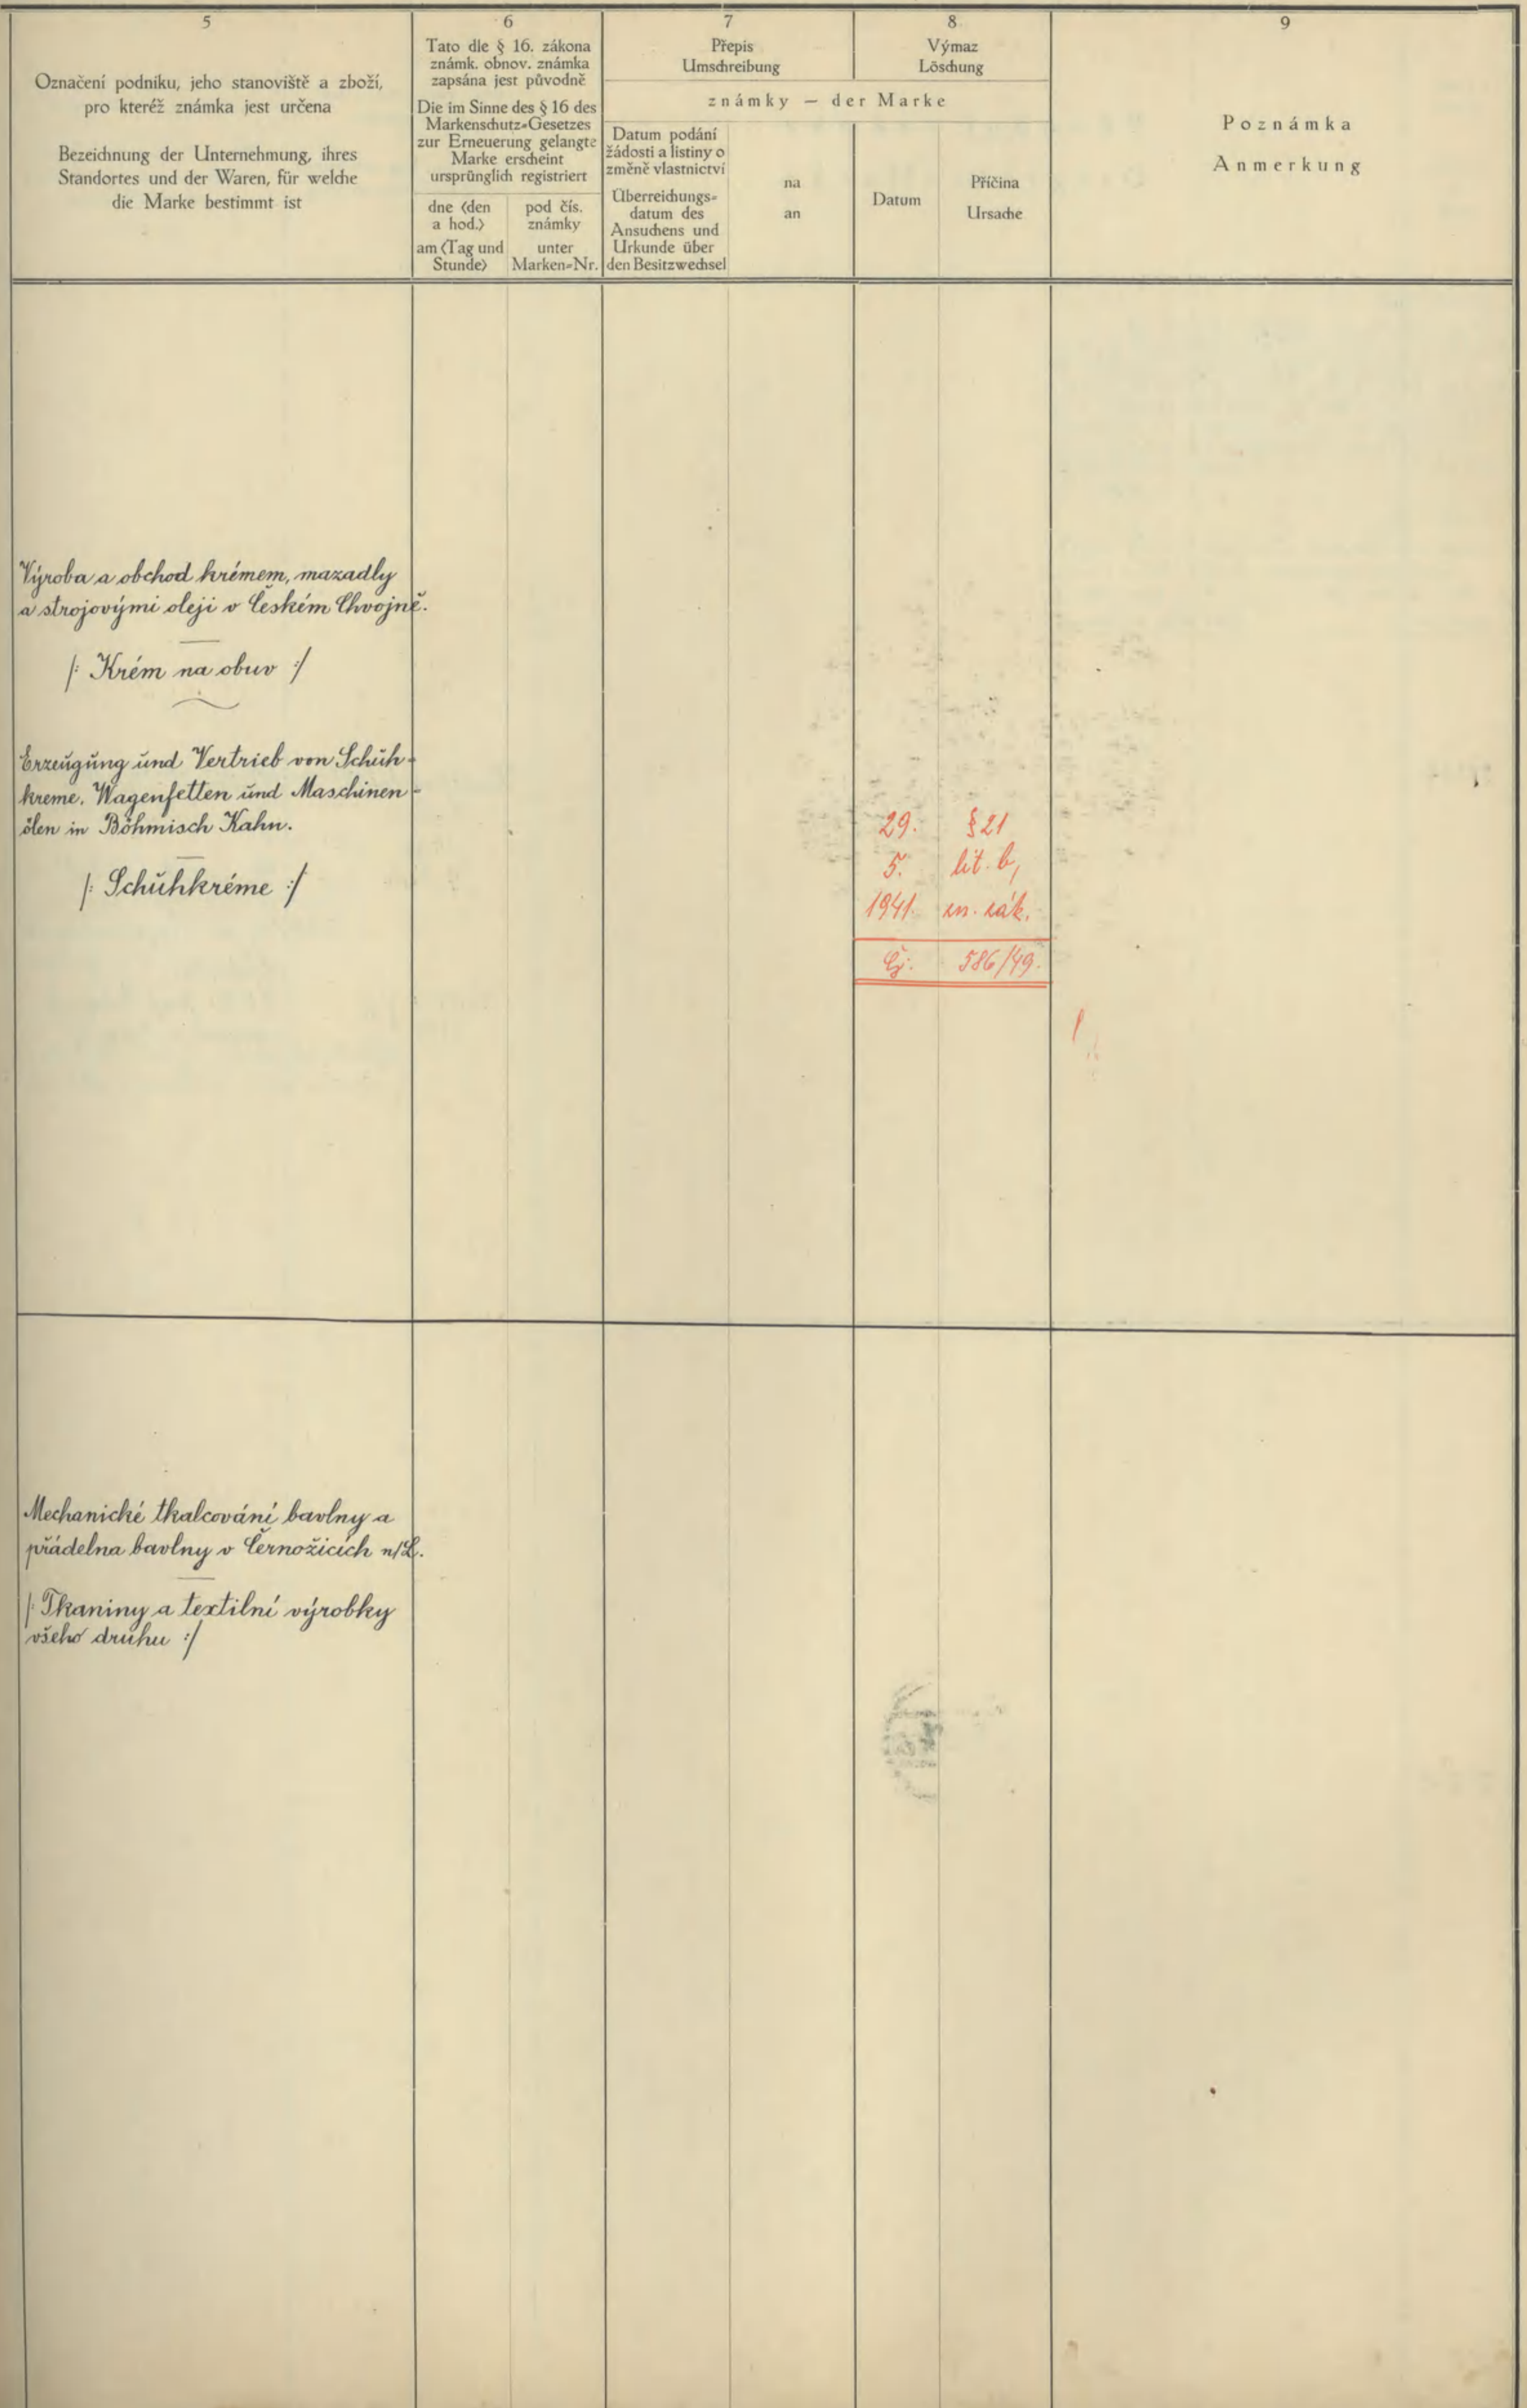 5
Označení podniku, jeho stanoviště a zboží,
pro kteréž známka jest určena
Bezeichnung der Unternehmung, ihres
Standortes und der Waren, für welche
die Marke bestimmt ist
6
Tato dle § 16. zákona
známk. obnov. známka
zapsána jest původně
Die im Sinne des § 16 des
Markenschutz-Gesetzes
zur Erneuerung gelangte
Marke erscheint
ursprünglich registriert
dne (den
a hod.)
am (Tag und
Stunde)
pod čís.
známky
unter
Marken-Nr.
7
Přepis
Umschreibung
8
Výmaz
Löschung
známky — der Marke
Datum podání
žádosti a listiny o
změně vlastnictví
Überreichungs-
datum des
Ansuchens und
Urkunde über
den Besitzwechsel
na
an
Datum
Příčina
Ursache
9
Poznámka
Anmerkung
Výroba a obchod krémem, mazadly
a strojovými oleji v Českém Chvojně.
/: Krém na obuv :/
Erzeugung und Vertrieb von Schuh-
kreme, Wagenfetten und Maschinen-
ölen in Böhmisch Kahn.
/: Schuhkréme :/
29. § 21
5. lit. b,
1941. zn. zák.
Čj. 586/49.
Mechanické tkalcování bavlny a
přádelna bavlny v Černožicích n/L.
/: Tkaniny a textilní výrobky
všeho druhu :/